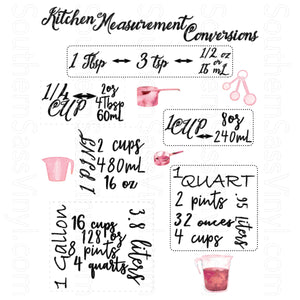 Kitchen Measurement Conversions
1 Tbsp ↔ 3 tsp ↔ 1/2 oz or 15 mL
1/4 CUP ↔ 2oz 4Tbsp 60mL
1 CUP ↔ 8oz 240mL
1 PINT
2 cups
480mL
16 oz
1 QUART
2 pints
32 ounces
4 cups
.95 liters
1 Gallon
16 cups
128 oz
8 pints
4 quarts
3.8 liters